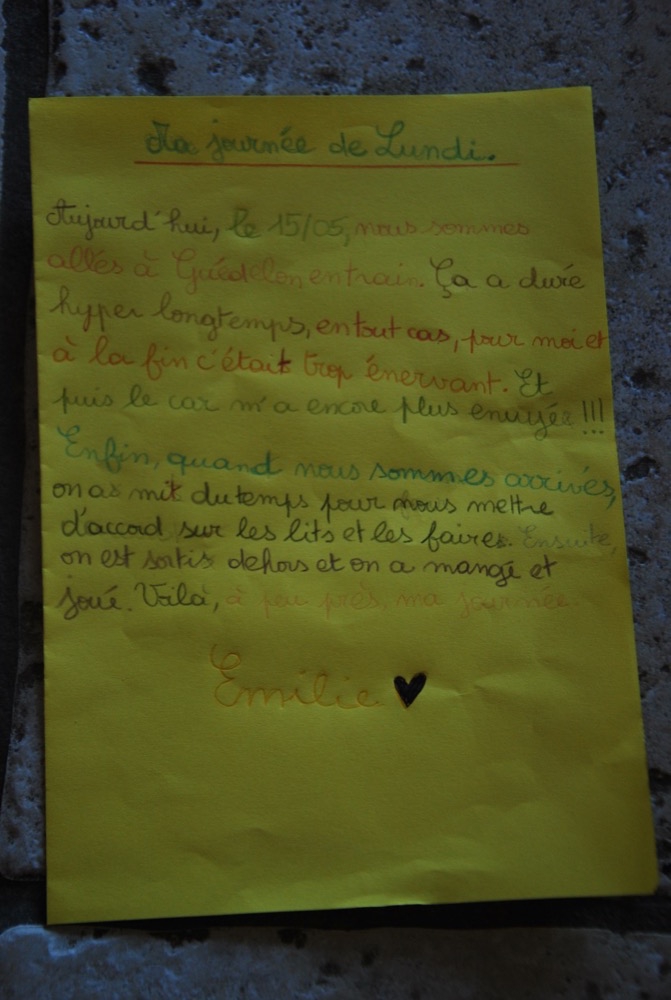 Ma journée de Lundi.
Aujourd'hui, le 15/05, nous sommes
allés à Guédelon en train. Ça a durée
hyper longtemps, en tout cas, pour moi et
à la fin c'était trop énervant. Et
puis le car m'a encore plus ennuyée !!!
Enfin, quand nous sommes arrivés,
on as mit du temps pour nous mettre
d'accord sur les lits et les faires. Ensuite,
on est sortis dehors et on a mangé et
joué. Voilà, à peu près, ma journée.
Emilie ♥